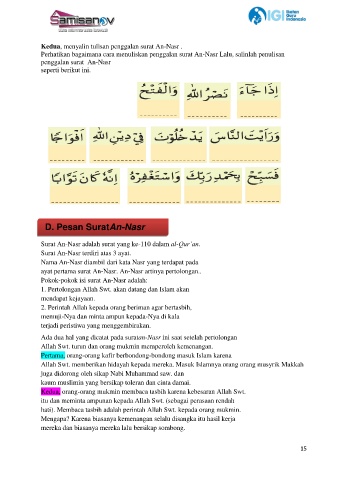 SAMISANOV
IGI Ikatan Guru Indonesia
Kedua, menyalin tulisan penggalan surat An-Nasr .
Perhatikan bagaimana cara menuliskan penggalan surat An-Nasr Lalu, salinlah penulisan
penggalan surat An-Nasr
seperti berikut ini.
إِذَا جَآءَ نَصْرُ اللّٰهِ وَالْفَتْحُ
وَرَاَيْتَ النَّاسَ يَدْخُلُوْنَ فِيْ دِيْنِ اللّٰهِ اَفْوَاجًا
فَسَبِّحْ بِحَمْدِ رَبِّكَ وَاسْتَغْفِرْهُ اِنَّهٗ كَانَ تَوَّابًا
D. Pesan SuratAn-Nasr
Surat An-Nasr adalah surat yang ke-110 dalam al-Qur'an.
Surat An-Nasr terdiri atas 3 ayat.
Nama An-Nasr diambil dari kata Nasr yang terdapat pada
ayat pertama surat An-Nasr. An-Nasr artinya pertolongan..
Pokok-pokok isi surat An-Nasr adalah:
1. Pertolongan Allah Swt. akan datang dan Islam akan
mendapat kejayaan.
2. Perintah Allah kepada orang beriman agar bertasbih,
memuji-Nya dan minta ampun kepada-Nya di kala
terjadi peristiwa yang menggembirakan.
Ada dua hal yang dicatat pada suratan-Nasr ini saat setelah pertolongan
Allah Swt. turun dan orang mukmin memperoleh kemenangan.
Pertama, orang-orang kafir berbondong-bondong masuk Islam karena
Allah Swt. memberikan hidayah kepada mereka. Masuk Islamnya orang orang musyrik Makkah
juga didorong oleh sikap Nabi Muhammad saw. dan
kaum muslimin yang bersikap toleran dan cinta damai.
Kedua, orang-orang mukmin membaca tasbih karena kebesaran Allah Swt.
itu dan meminta ampunan kepada Allah Swt. (sebagai perasaan rendah
hati). Membaca tasbih adalah perintah Allah Swt. kepada orang mukmin.
Mengapa? Karena biasanya kemenangan selalu disangka itu hasil kerja
mereka dan biasanya mereka lalu bersikap sombong.
15